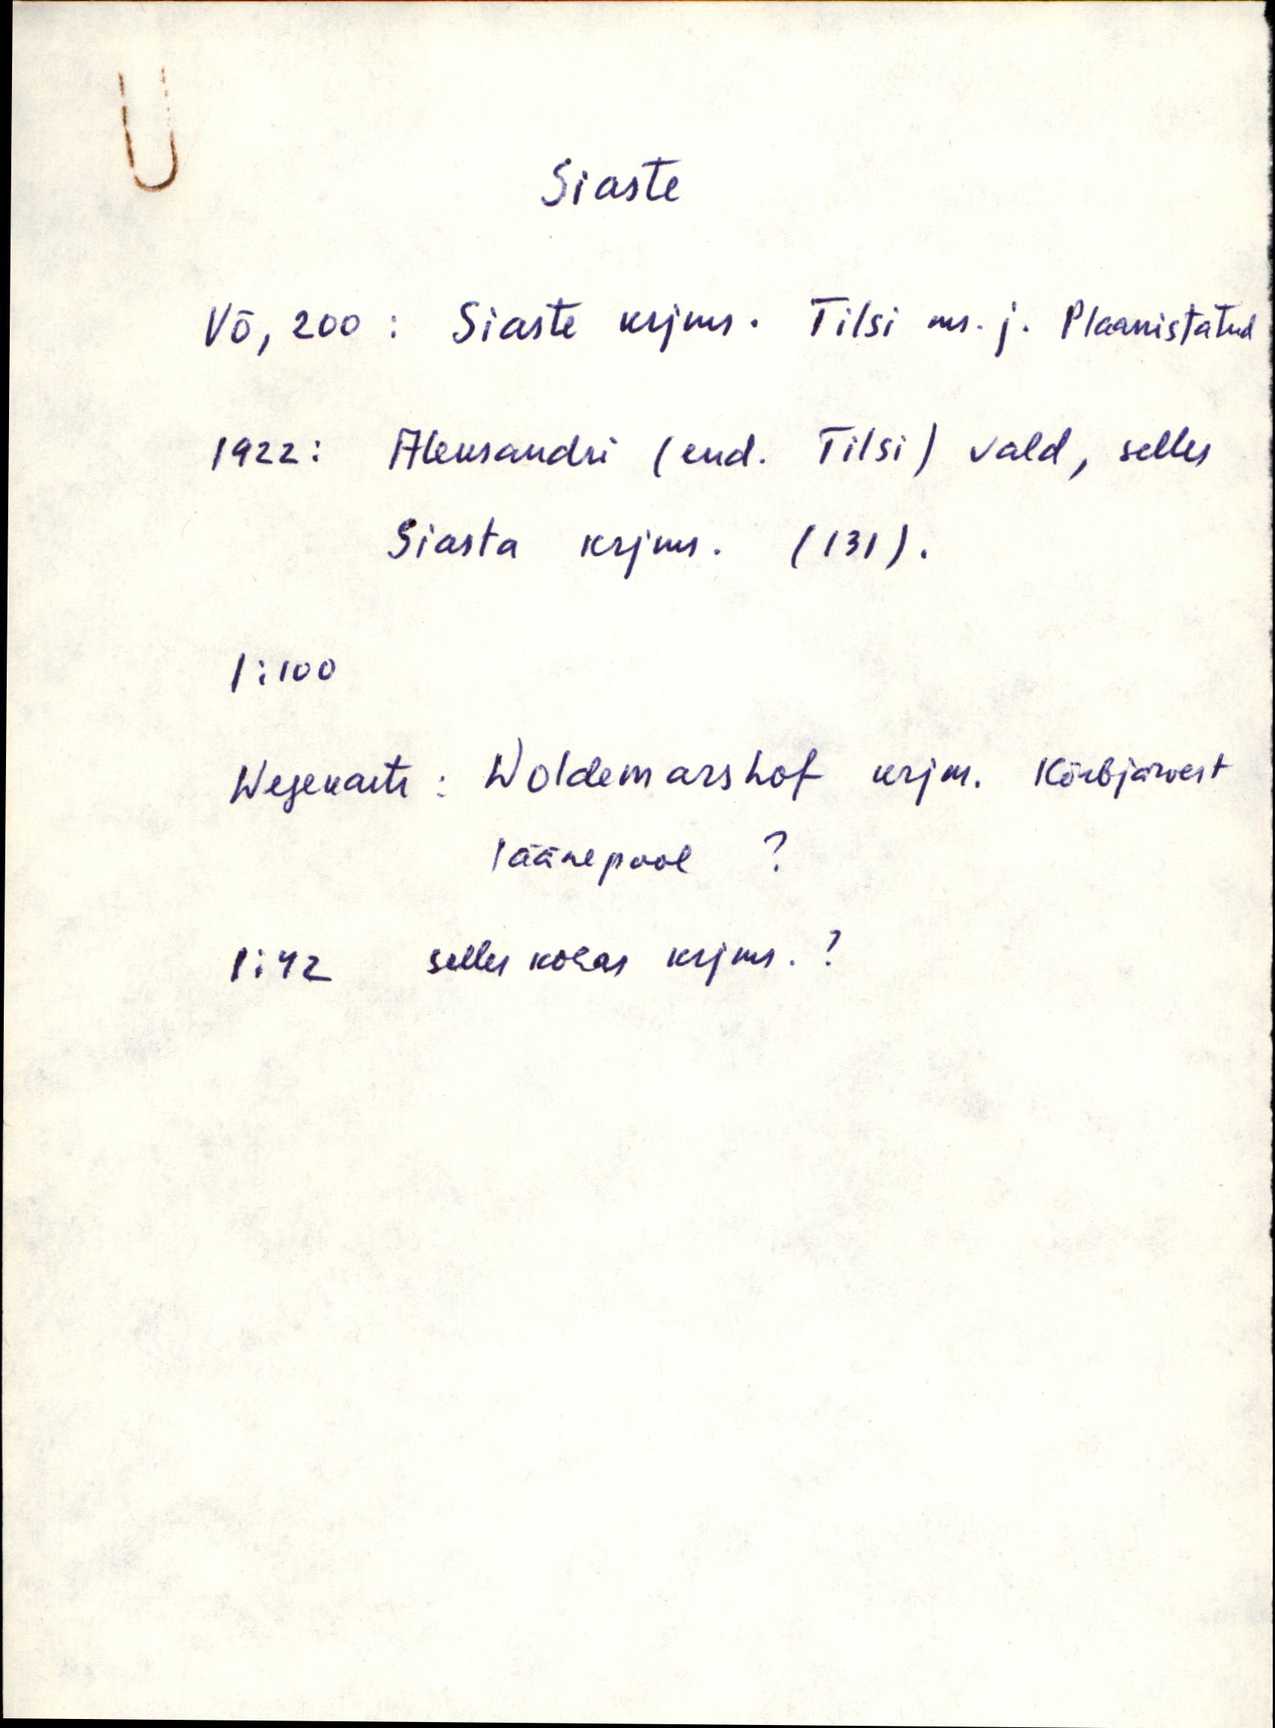 Siaste
Võ, 200 : Siaste krjms. Tilsi ms. j. Plaanistatud
1922: Aleksandri (end. Tilsi) vald, selles
Siasta krjms. (131).
1:100
Wegekarte : Woldemarshof krjm. Kõrbjärvest
läänepool ?
1:42 selles kohas krjms. ?